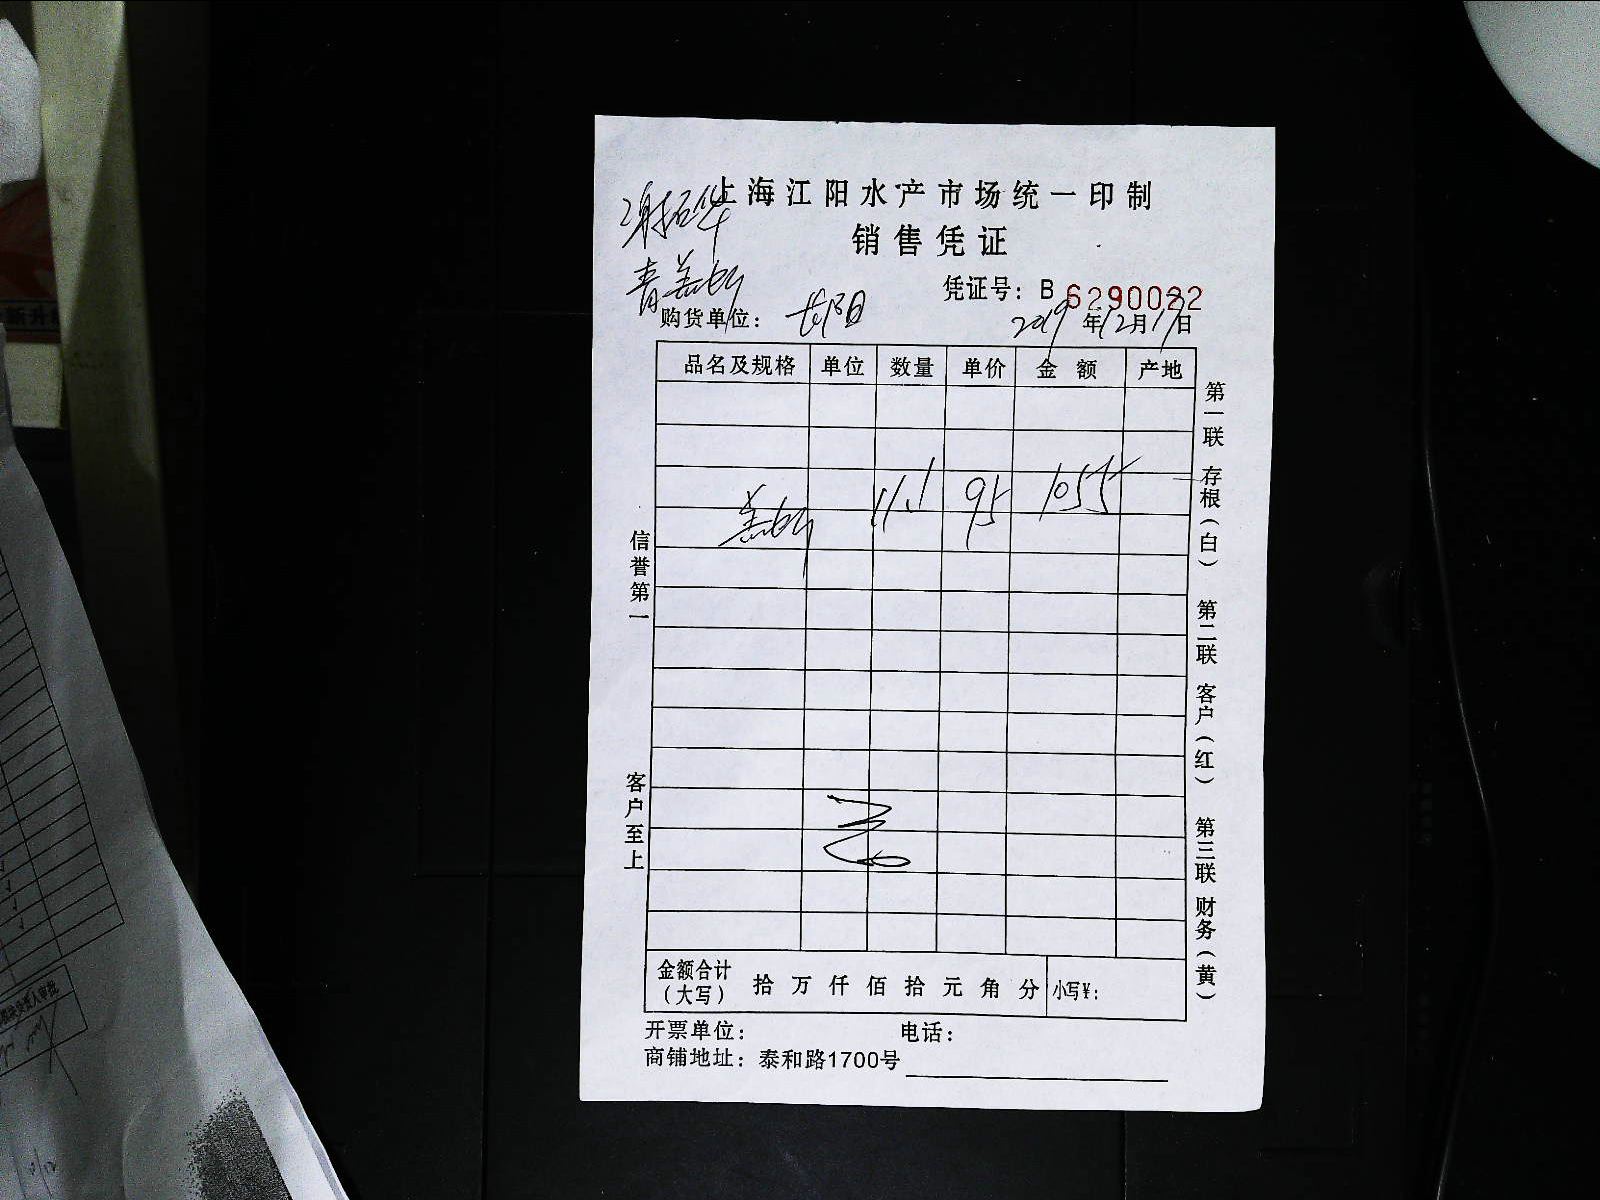 上海江阳水产市场统一印制
销售凭证
凭证号：B 6290022
购货单位：长阳
2019年12月17日
品名及规格 单位 数量 单价 金额 产地
11.1 95 1055
金额合计（大写） 拾万仟佰拾元角分 小写¥：
开票单位： 电话：
商铺地址：泰和路1700号
信誉第一 客户至上
第一联 存根（白） 第二联 客户（红） 第三联 财务（黄）